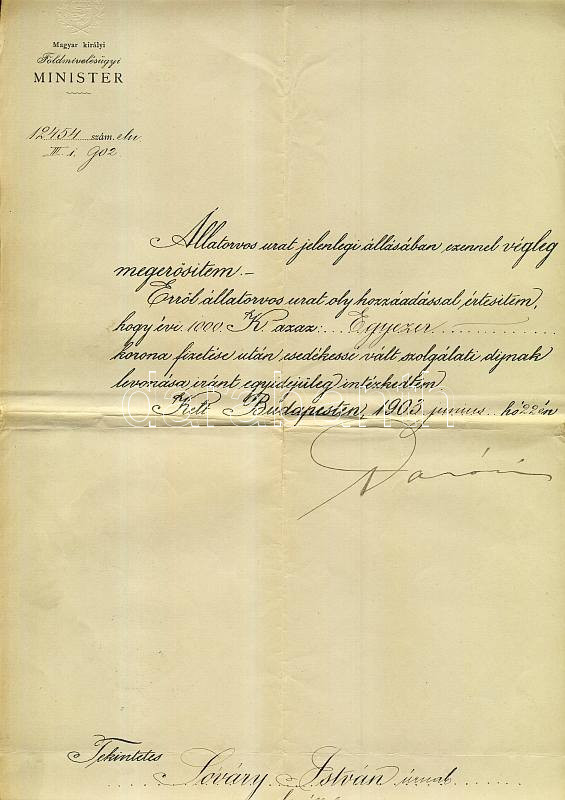 Magyar királyi
Földmivelésügyi
MINISTER
12454 szám. eln.
III. 1. 902.
Állatorvos urat jelenlegi állásában ezennel végleg
megerősitem.–
Erről állatorvos urat oly hozzáadással értesitem,
hogy évi 1000. K. azaz: Egyezer
korona fizetése után esedékessé vált szolgálati dijnak
levonása iránt egyidejüleg intézkedtem.
Kelt Budapesten, 1903 junius hó 22én
Darányi
Tekintetes
Lóváry István úrnak